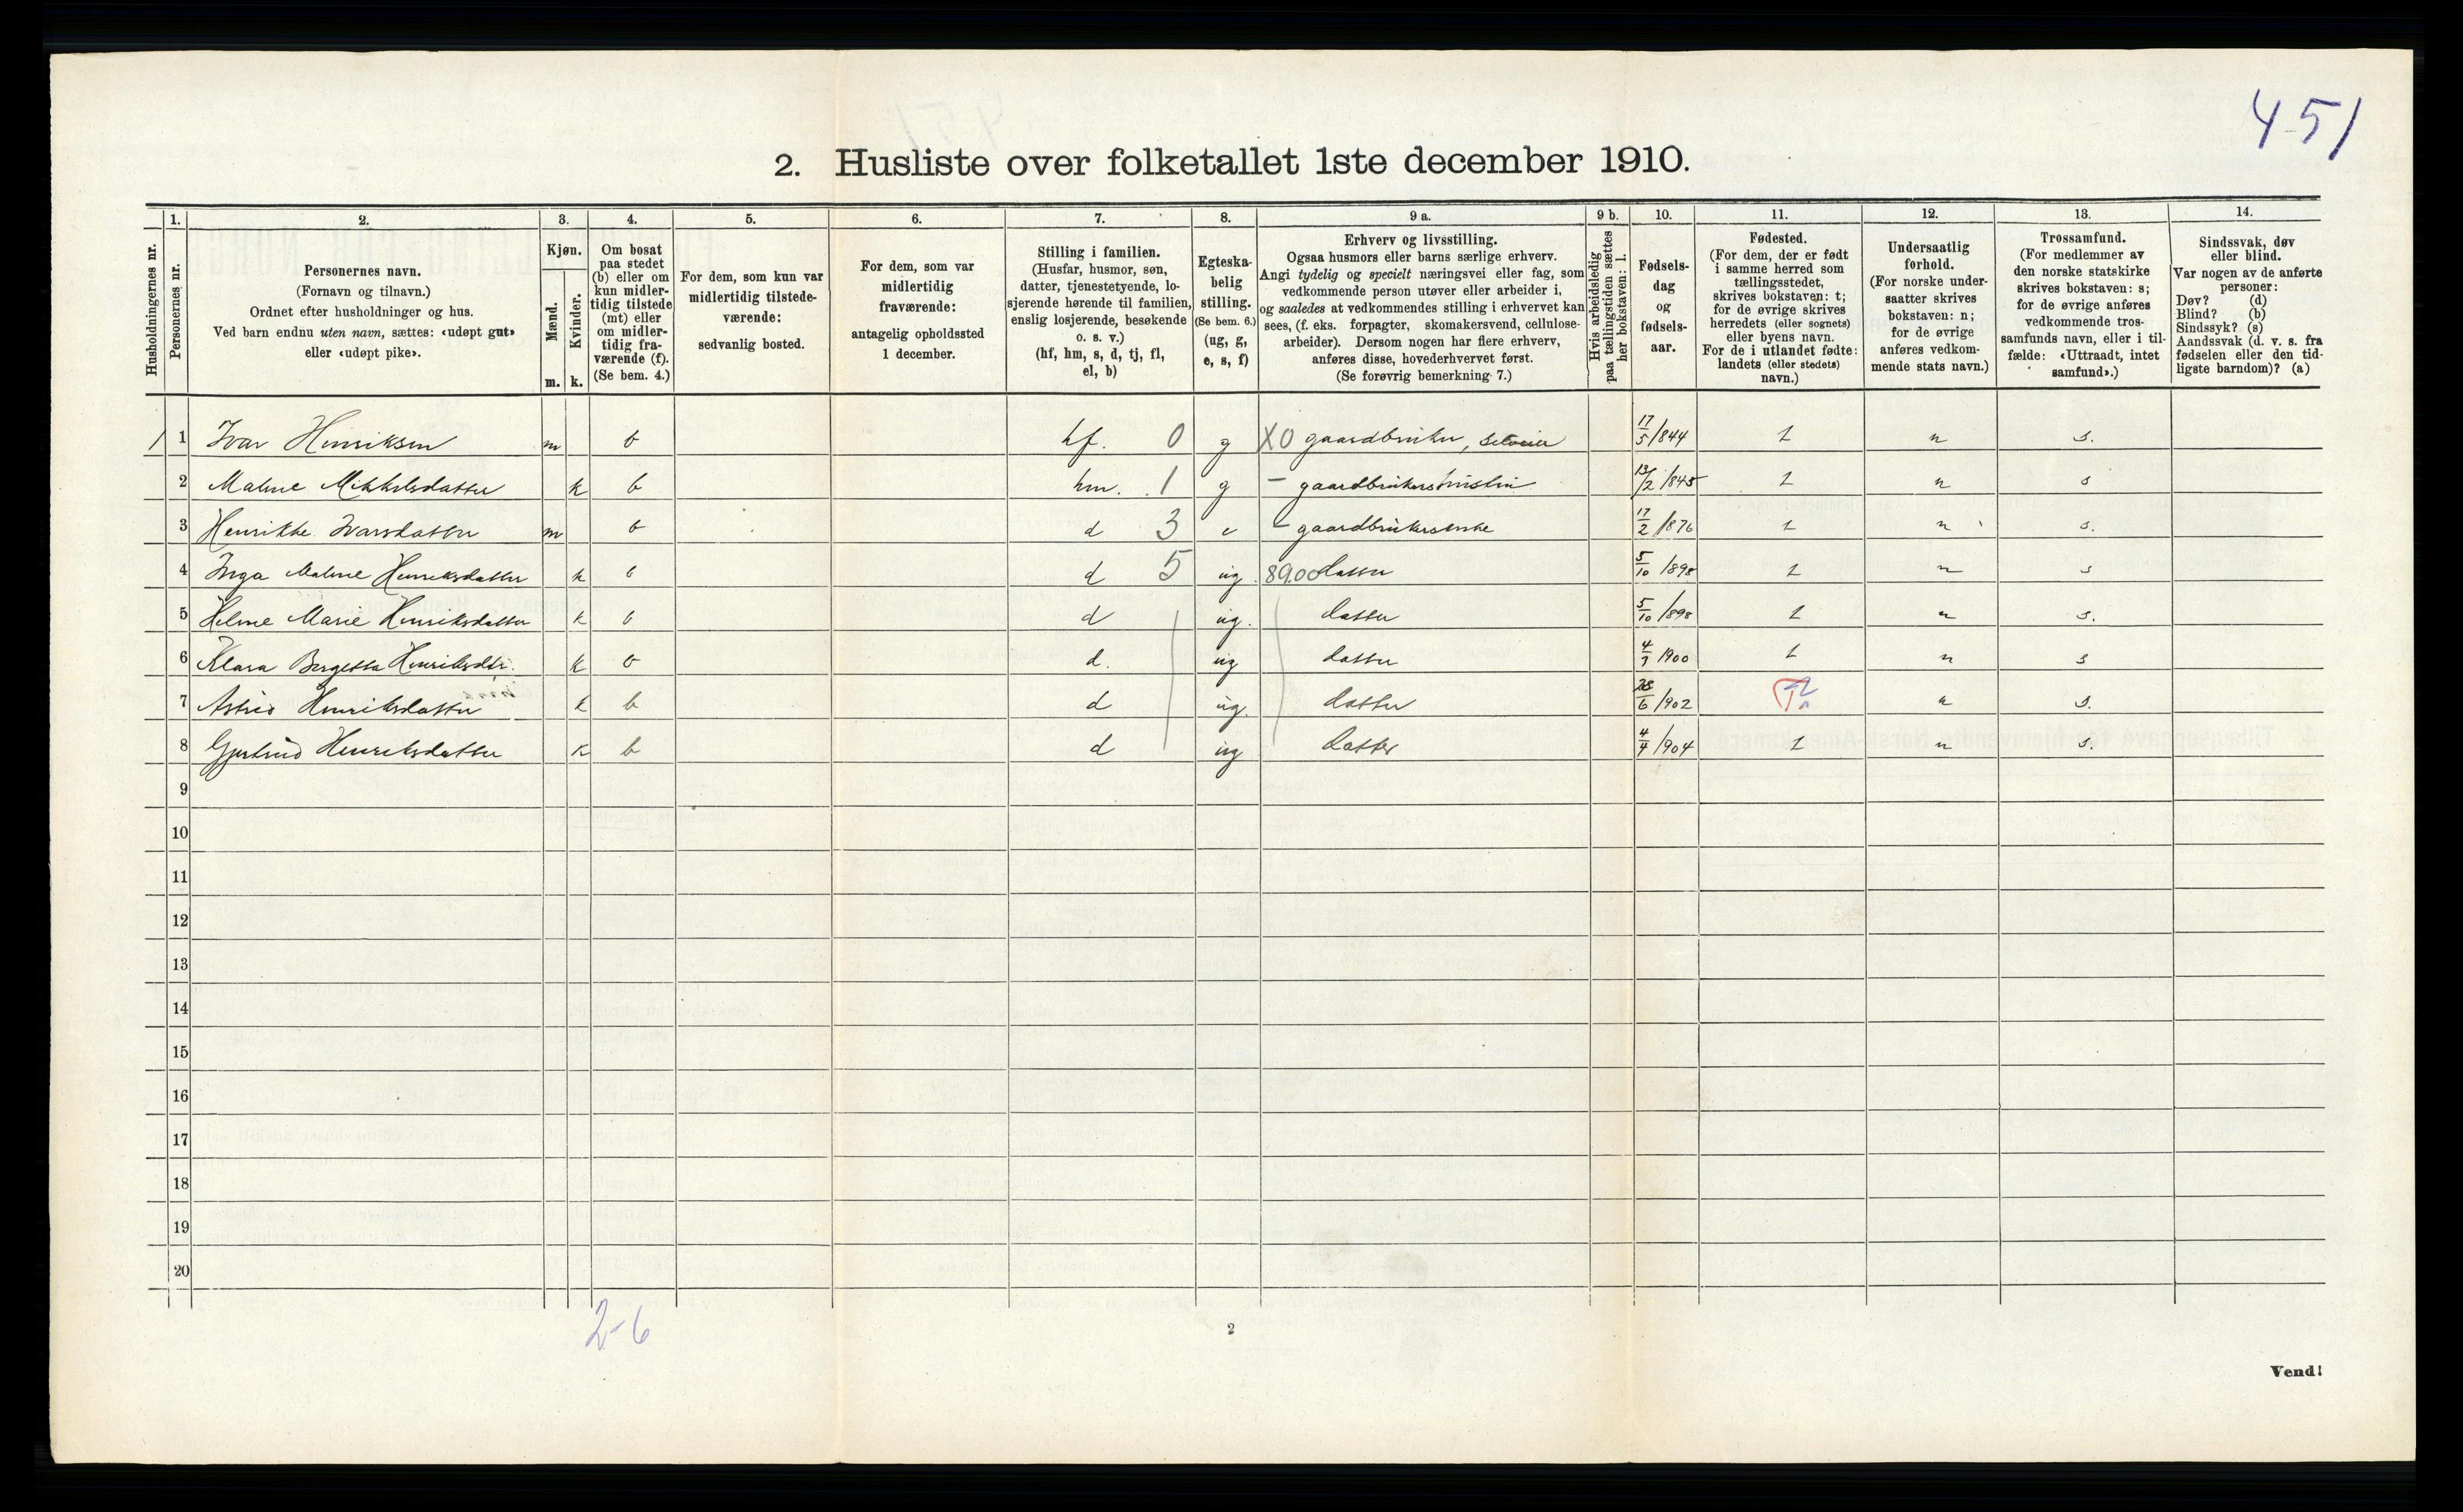 451
2. Husliste over folketallet 1ste december 1910.
Husholdningernes nr.
1.
Personernes nr.
2.
Personernes navn.
(Fornavn og tilnavn.)
Ordnet efter husholdninger og hus.
Ved barn endnu uten navn, sættes: «udøpt gut»
eller «udøpt pike».
3.
Kjøn.
Mænd.
Kvinder.
m. k.
4.
Om bosat
paa stedet
(b) eller om
kun midler-
tidig tilstede
(mt) eller
om midler-
tidig fra-
værende (f).
(Se bem. 4.)
5.
For dem, som kun var
midlertidig tilstede-
værende:
sedvanlig bosted.
6.
For dem, som var
midlertidig
fraværende:
antagelig opholdssted
1 december.
7.
Stilling i familien.
(Husfar, husmor, søn,
datter, tjenestetyende, lo-
sjerende hørende til familien,
enslig losjerende, besøkende
o. s. v.)
(hf, hm, s, d, tj, fl,
el, b)
8.
Egteska-
belig
stilling.
(Se bem. 6.)
(ug, g,
e, s, f)
9 a.
Erhverv og livsstilling.
Ogsaa husmors eller barns særlige erhverv.
Angi tydelig og specielt næringsvei eller fag, som
vedkommende person utøver eller arbeider i,
og saaledes at vedkommendes stilling i erhvervet kan
sees, (f. eks. forpagter, skomakersvend, cellulose-
arbeider). Dersom nogen har flere erhverv,
anføres disse, hovederhvervet først.
(Se forøvrig bemerkning 7.)
9 b.
Hvis arbeidsledig
paa tællingstiden sættes
her bokstaven: l.
10.
Fødsels-
dag
og
fødsels-
aar.
11.
Fødested.
(For dem, der er født
i samme herred som
tællingsstedet,
skrives bokstaven: t;
for de øvrige skrives
herredets (eller sognets)
eller byens navn.
For de i utlandet fødte:
landets (eller stedets)
navn.)
12.
Undersaatlig
forhold.
(For norske under-
saatter skrives
bokstaven: n;
for de øvrige
anføres vedkom-
mende stats navn.)
13.
Trossamfund.
(For medlemmer av
den norske statskirke
skrives bokstaven: s;
for de øvrige anføres
vedkommende tros-
samfunds navn, eller i til-
fælde: «Uttraadt, intet
samfund».)
14.
Sindssvak, døv
eller blind.
Var nogen av de anførte
personer:
Døv? (d)
Blind? (b)
Sindssyk? (s)
Aandssvak (d. v. s. fra
fødselen eller den tid-
ligste barndom)? (a)
1 1 Ivar Henriksen m b hf. 0 g X0 gaardbruker, selveier 17/5 /844 t n s.
2 Maline Mikkelsdatter k b hm. 1 g - gaardbrukershustru 13/2 /845 t n s
3 Henrikke Ivarsdatter m b d 3 e - gaardbrukerenke 17/2 /876 t n s.
4 Inga Maline Henriksdatter k b d 5 ug 89.00 datter 5/10 /898 t n s
5 Heline Marie Henriksdatter k b d ug. datter 5/10 /898 t n s.
6 Klara Bergetta Henriksdtr. k b d. ug datter 4/9 1900 t n s
7 Astrid Henriksdatter k b d ug. datter 28/6 /902 n s.
8 Gjertrud Henriksdatter k b d ug datter 4/4 /904 t n s.
9
10
11
12
13
14
15
16
17
18
19
20
2-6
2
Vend!